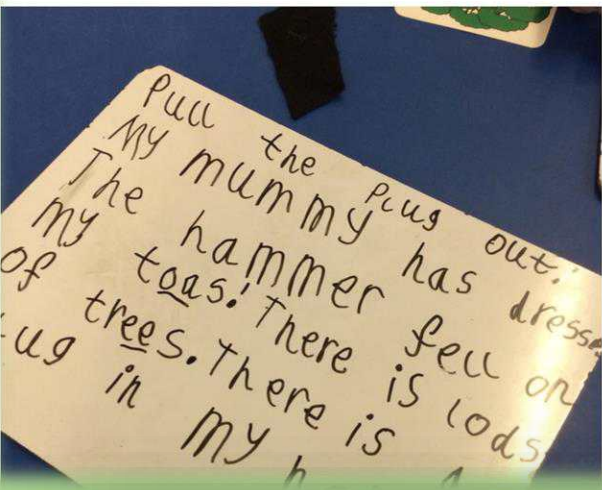 Pull the plug out!
My mummy has
The hammer fell on
my toas! There is lods
of trees. There is
in my